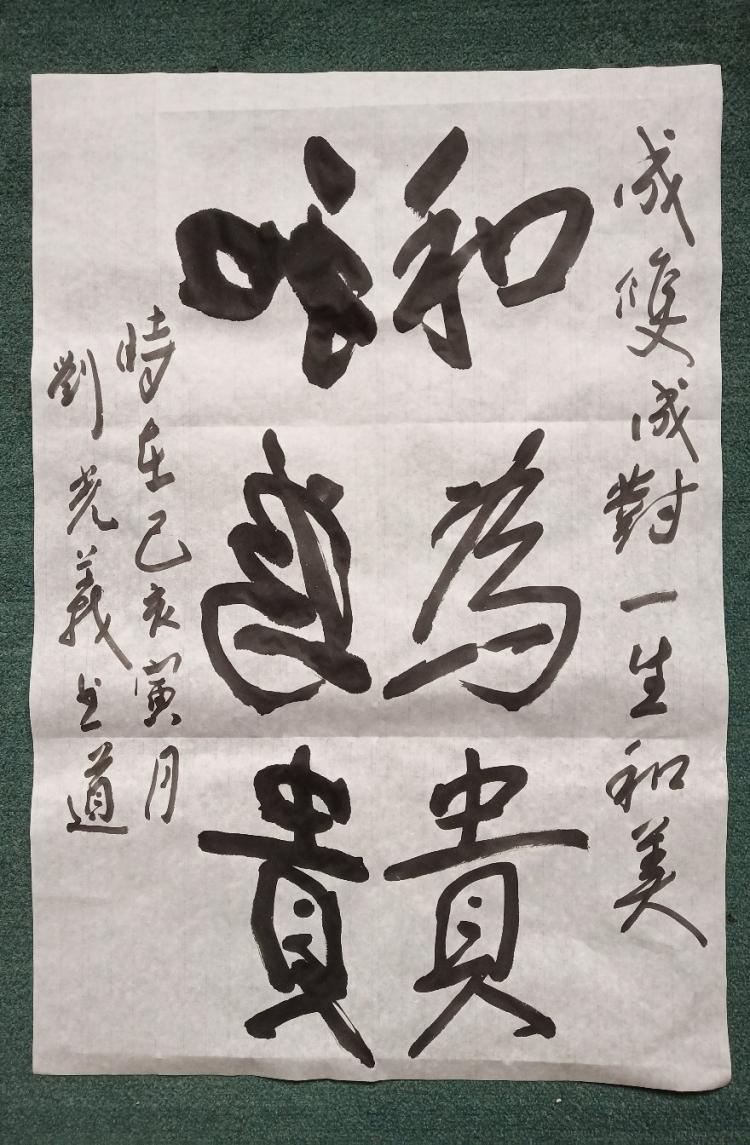 成雙成對一生和美
和為貴
和為貴
時在己亥寅月
劉光義書道